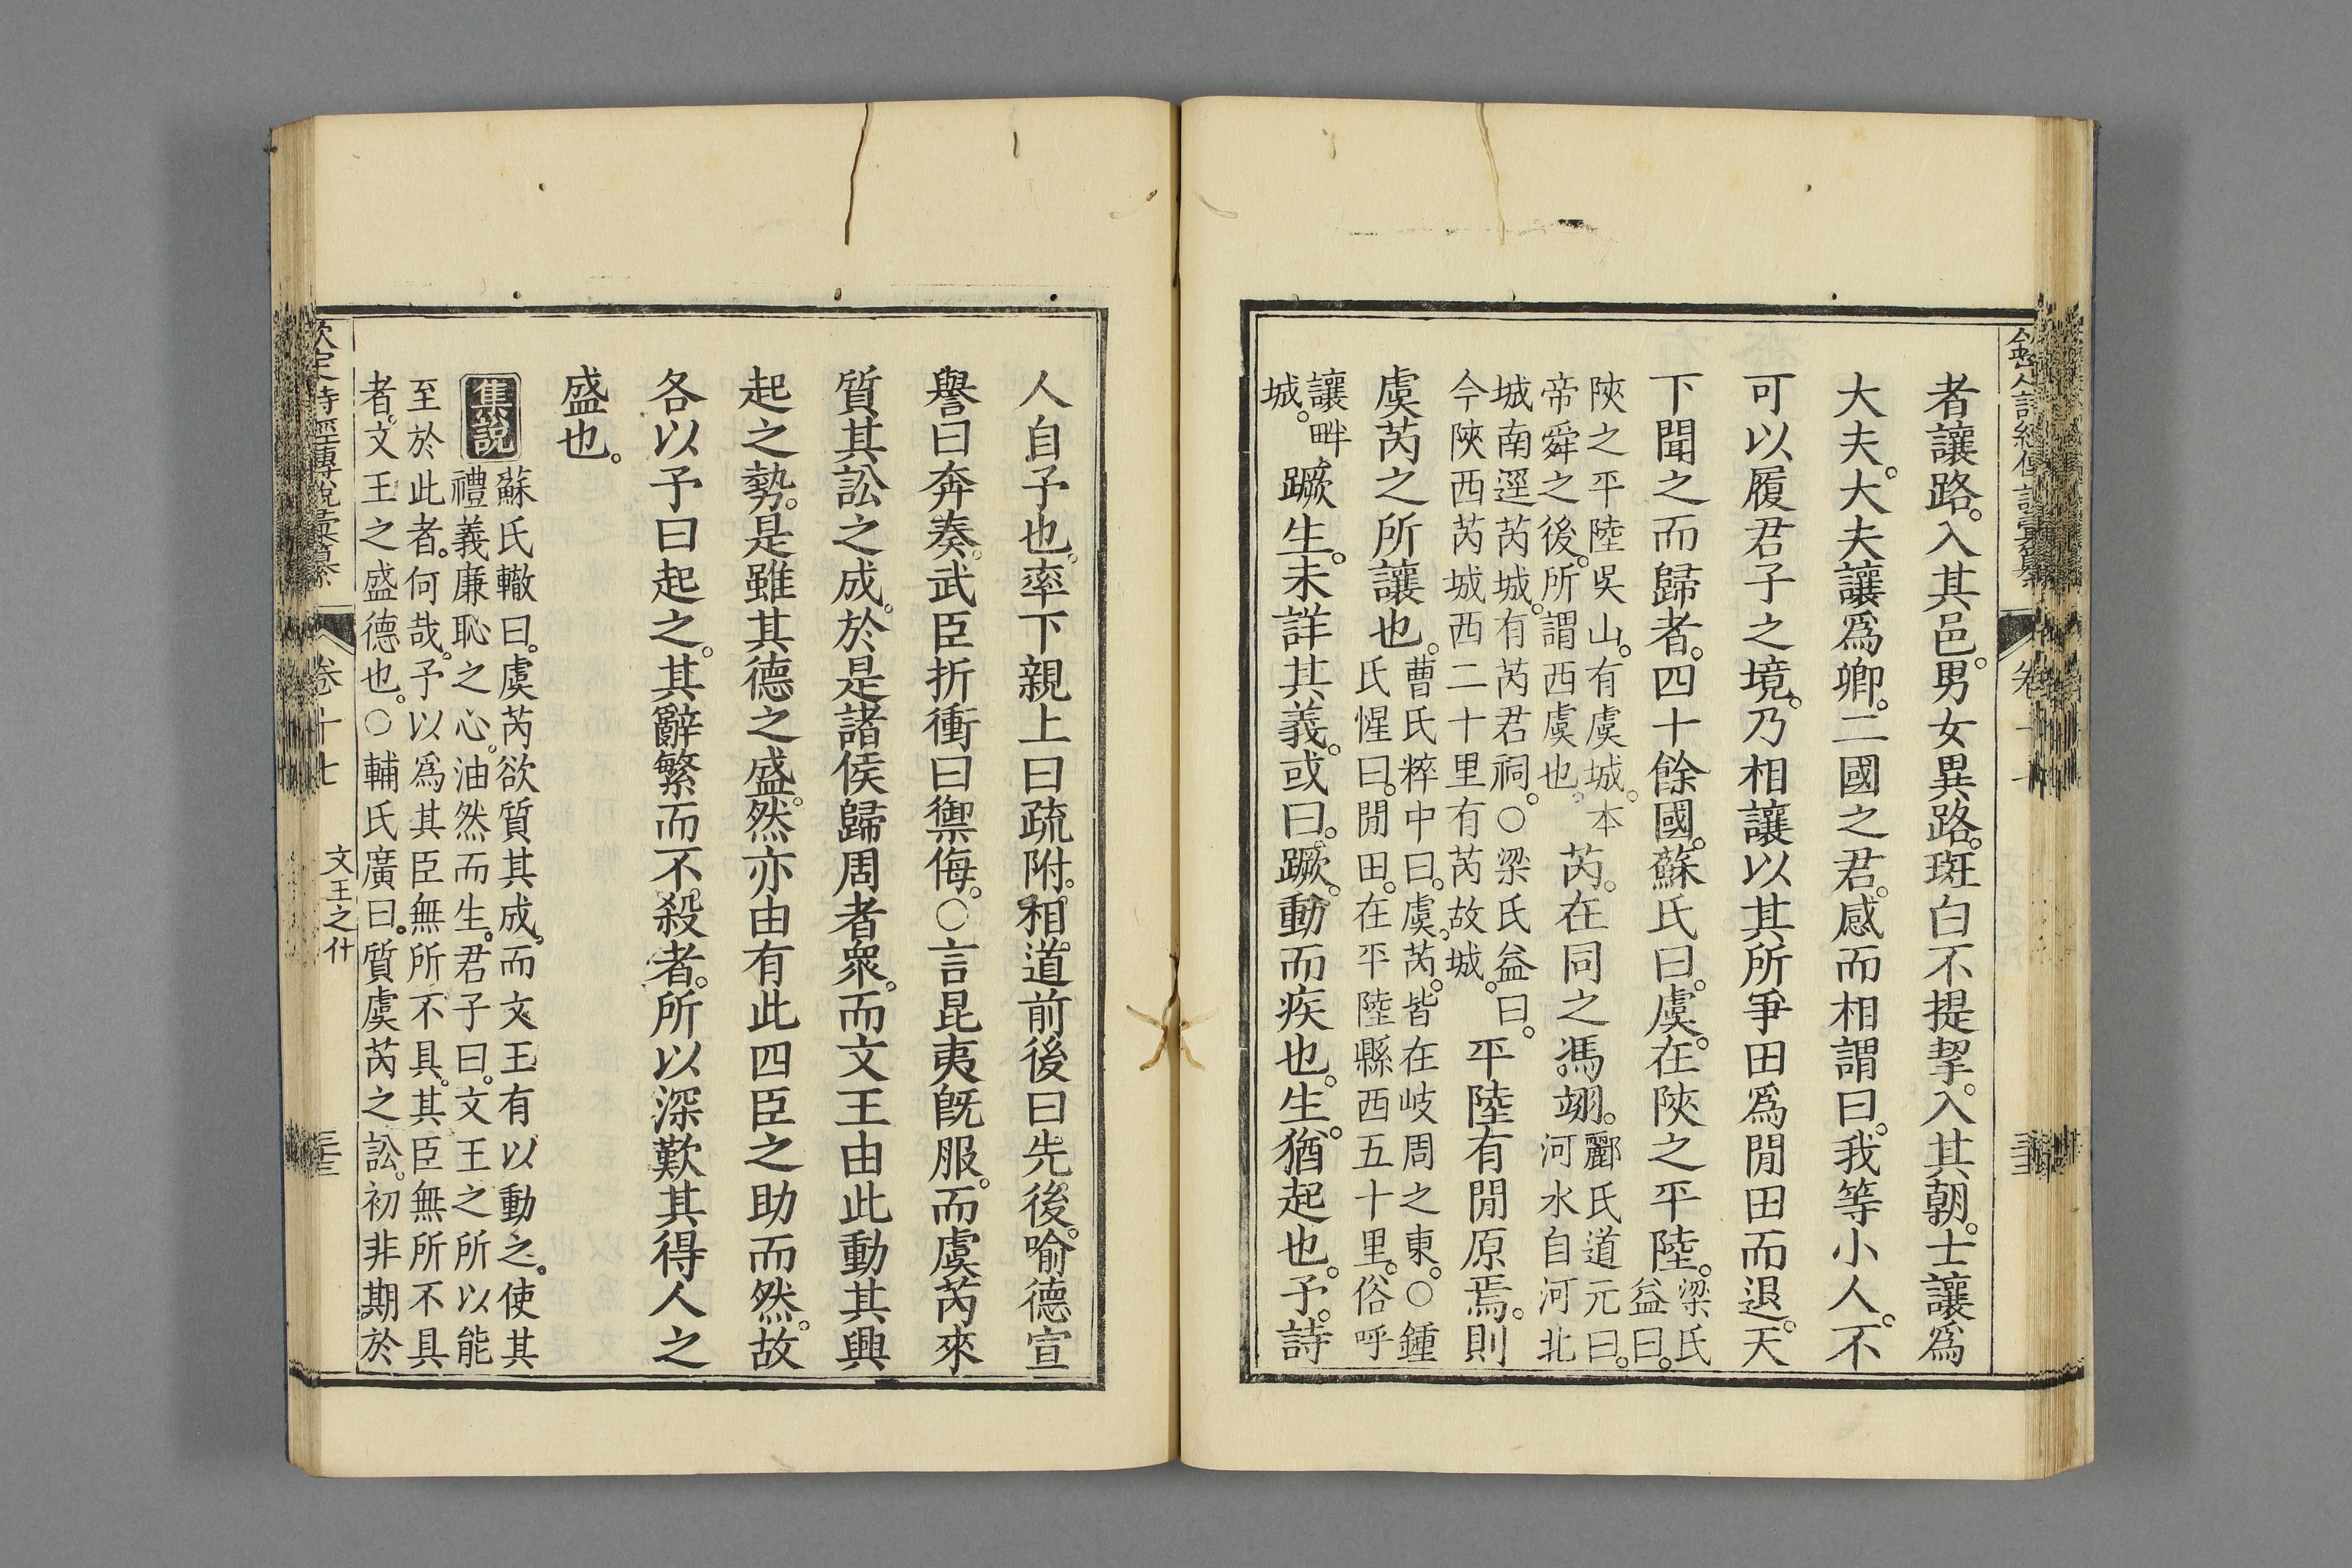 者讓路。入其邑。男女異路。斑白不提挈。入其朝。士讓爲
大夫。大夫讓爲卿。二國之君。感而相謂曰。我等小人。不
可以履君子之境。乃相讓以其所爭田爲閒田而退。天
下聞之而歸者。四十餘國。蘇氏曰。虞。在陝之平陸。梁氏益曰。
陝之平陸吳山。有虞城。本帝舜之後。所謂西虞也。芮。在同之馮翊。酈氏道元曰。河水自河北
城南逕芮城。有芮君祠。○梁氏益曰。今陝西芮城西二十里有芮故城。平陸有閒原焉。則
虞芮之所讓也。曹氏粹中曰。虞。芮。皆在岐周之東。○鍾氏惺曰。閒田。在平陸縣西五十里。俗呼
讓畔城。蹶生。未詳其義。或曰。蹶。動而疾也。生。猶起也。予。詩
人自予也。率下親上曰疏附。相道前後曰先後。喻德宣
譽曰奔奏。武臣折衝曰禦侮。○言昆夷旣服。而虞芮來
質其訟之成。於是諸侯歸周者衆。而文王由此動其興
起之勢。是雖其德之盛。然亦由有此四臣之助而然。故
各以予曰起之。其辭繁而不殺者。所以深歎其得人之
盛也。
集說 蘇氏轍曰。虞芮欲質其成。而文王有以動之。使其
禮義廉恥之心。油然而生。君子曰。文王之所以能
至於此者。何哉。予以爲其臣無所不具。其臣無所不具
者。文王之盛德也。○輔氏廣曰。質虞芮之訟。初非期於
卷十七
文王之什